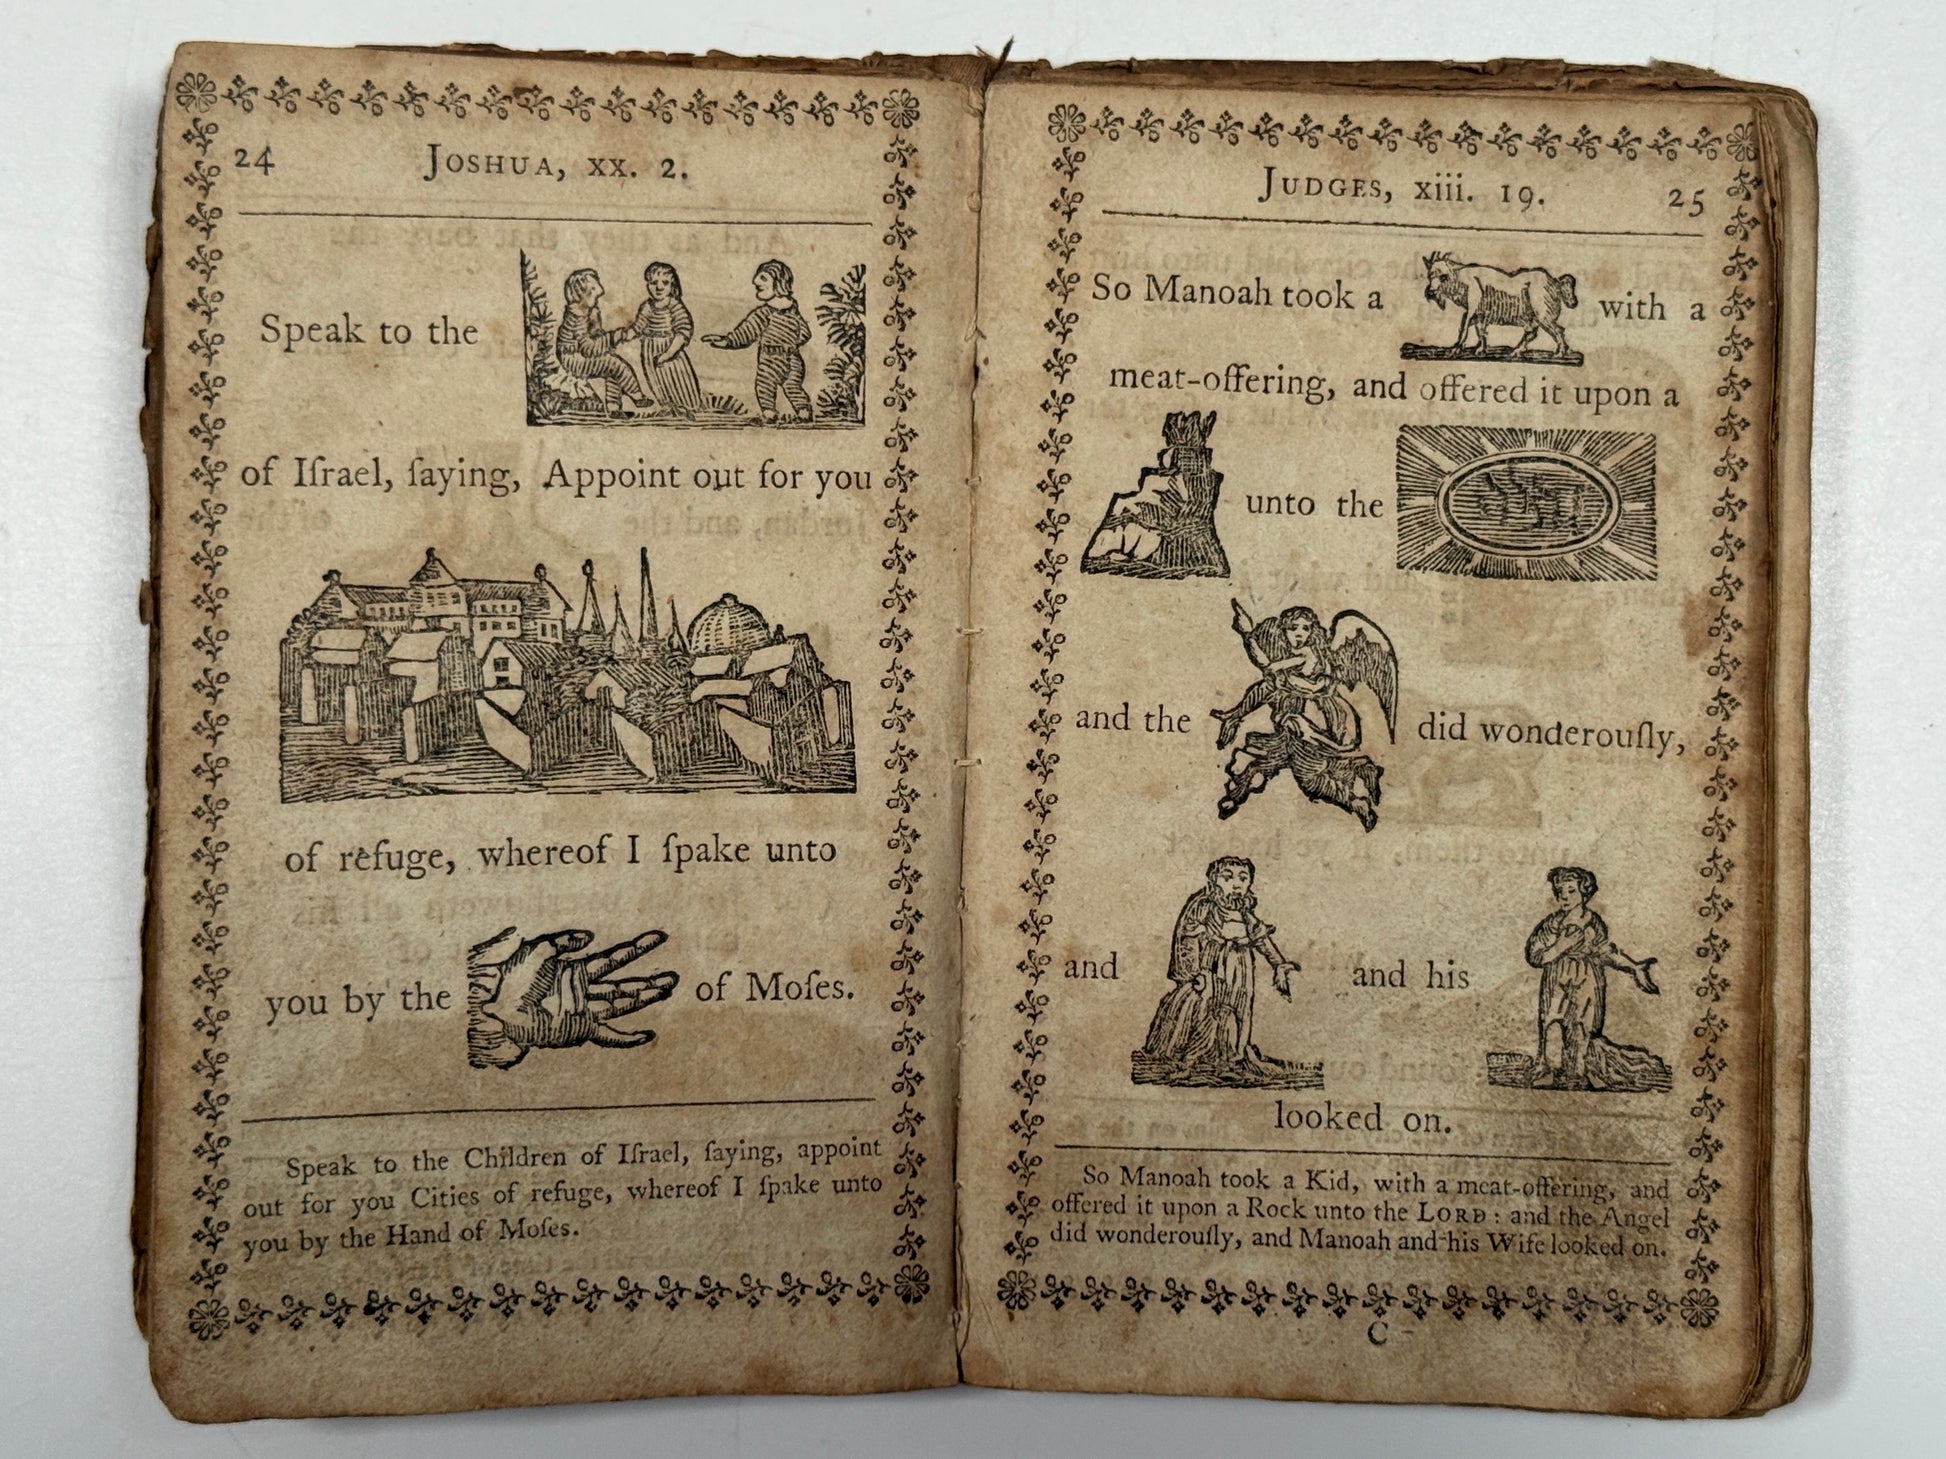 24
JOSHUA, xx. 2.
Speak to the
of Iſrael, ſaying, Appoint out for you
of refuge, whereof I ſpake unto
you by the
of Moſes.
Speak to the Children of Iſrael, ſaying, appoint
out for you Cities of refuge, whereof I ſpake unto
you by the Hand of Moſes.
JUDGES, xiii. 19.
25
So Manoah took a
with a
meat-offering, and offered it upon a
unto the
and the
did wonderouſly,
and
and his
looked on.
So Manoah took a Kid, with a meat-offering, and
offered it upon a Rock unto the LORD : and the Angel
did wonderouſly, and Manoah and his Wife looked on.
C